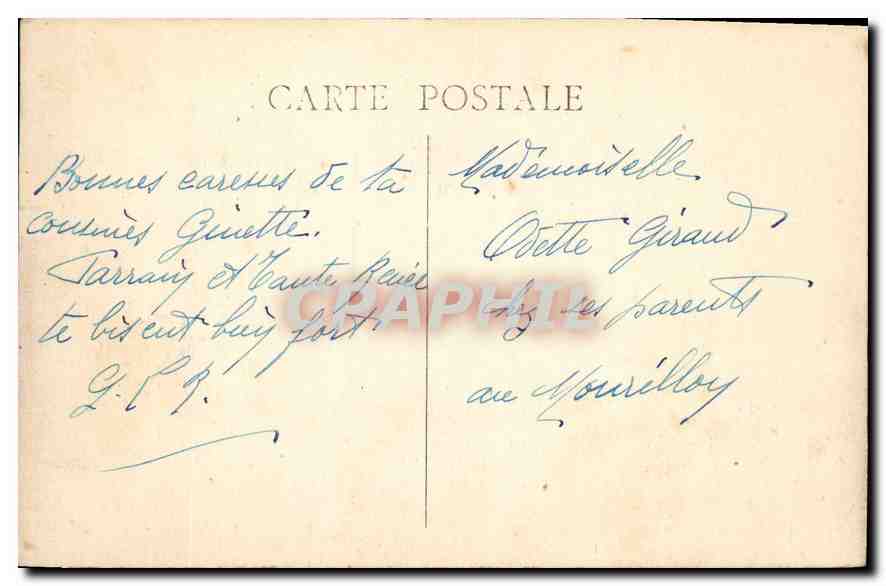 CARTE POSTALE
Bonnes caresses de ta
cousines Ginette.
Parrain et Tante Renée
te bisent bien fort
G. L R.
Mademoiselle
Odette Giraud
chez ses parents
au Mourillon
CPAPHIL